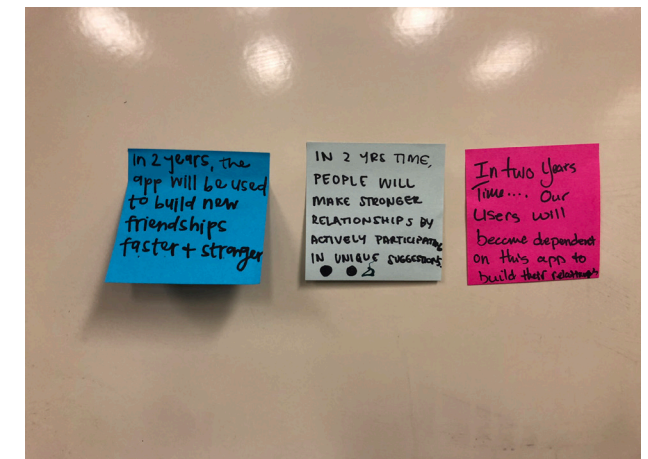 in 2 years, the
app will be used
to build new
friendships
faster + stronger
IN 2 YRS TIME,
PEOPLE WILL
MAKE STRONGER
RELATIONSHIPS BY
ACTIVELY PARTICIPATING
IN UNIQUE SUGGESTIONS.
In two Years
Time.... Our
Users will
become dependent
on this app to
build their relationships